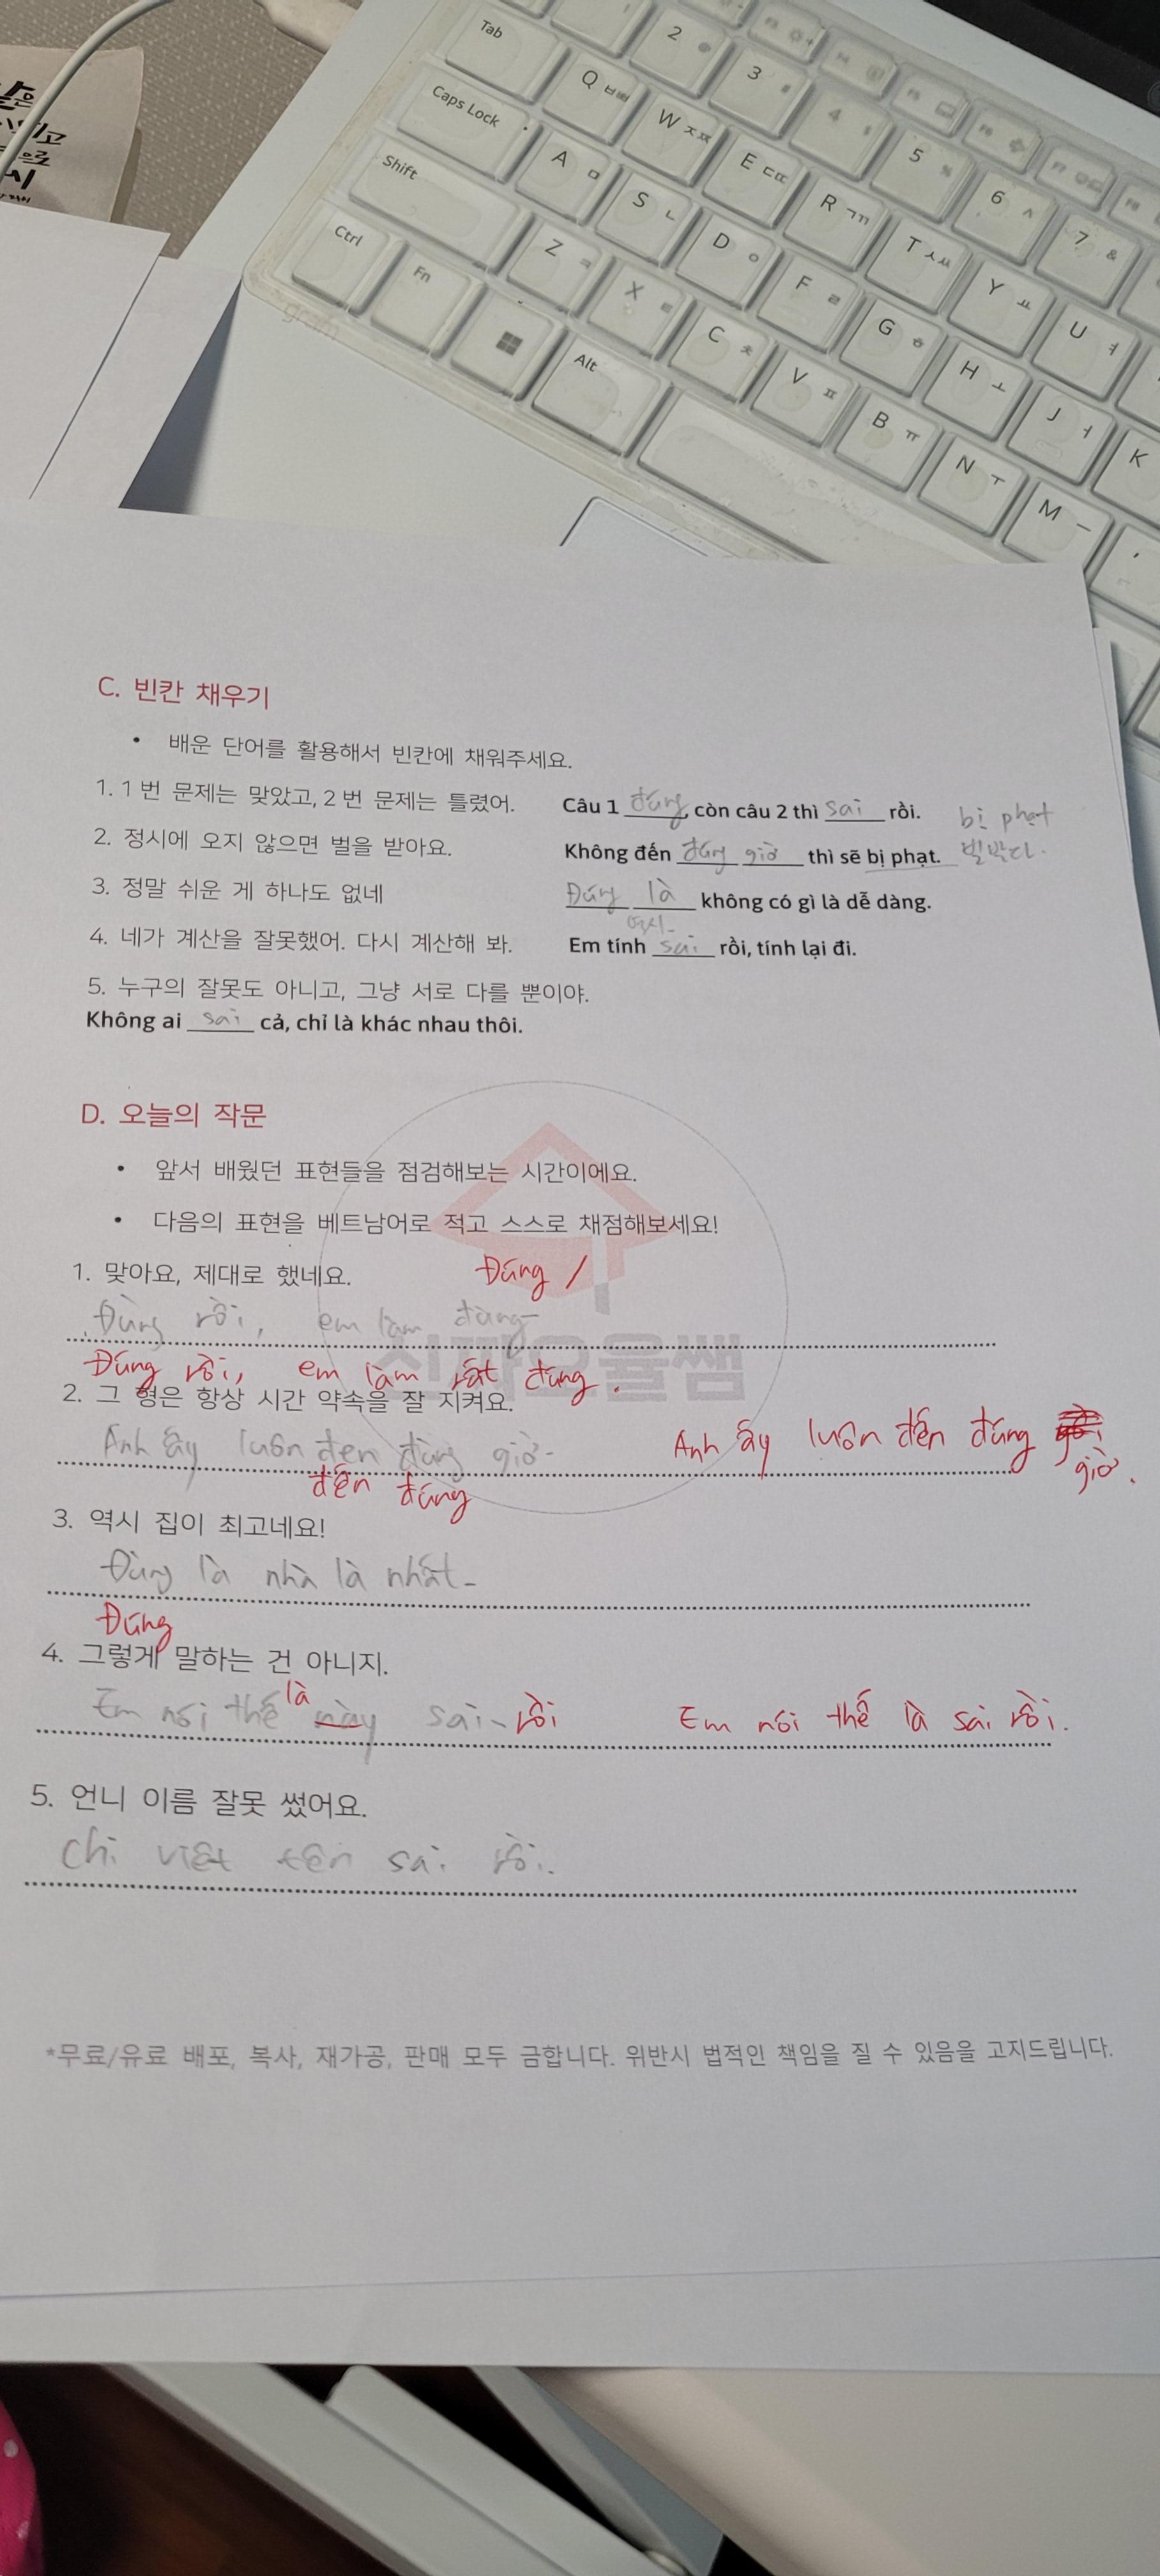 Tab
Caps Lock
Shift
Ctrl
Fn
Alt
2
3 #
4 $
5 %
6 ^
7 &
Q ㅂㅃ
W ㅈㅉ
E ㄷㄸ
R ㄱㄲ
T ㅅㅆ
Y ㅛ
U ㅕ
A ㅁ
S ㄴ
D ㅇ
F ㄹ
G ㅎ
H ㅗ
J ㅓ
K
Z ㅋ
X ㅌ
C ㅊ
V ㅍ
B ㅠ
N ㅜ
M ㅡ
gram
C. 빈칸 채우기
• 배운 단어를 활용해서 빈칸에 채워주세요.
1. 1번 문제는 맞았고, 2번 문제는 틀렸어. Câu 1 đúng, còn câu 2 thì sai rồi. bị phạt
2. 정시에 오지 않으면 벌을 받아요. Không đến đúng giờ thì sẽ bị phạt. 벌받다.
3. 정말 쉬운 게 하나도 없네 Đúng là không có gì là dễ dàng.
역시
4. 네가 계산을 잘못했어. 다시 계산해 봐. Em tính sai rồi, tính lại đi.
5. 누구의 잘못도 아니고, 그냥 서로 다를 뿐이야.
Không ai sai cả, chỉ là khác nhau thôi.
D. 오늘의 작문
• 앞서 배웠던 표현들을 점검해보는 시간이에요.
• 다음의 표현을 베트남어로 적고 스스로 채점해보세요!
1. 맞아요, 제대로 했네요. Đúng /
Đùng rồi, em làm đùng
Đúng rồi, em làm rất đúng.
2. 그 형은 항상 시간 약속을 잘 지켜요.
Anh ấy luôn đen đùng giờ. Anh ấy luôn đến đúng giờ.
đến đúng
3. 역시 집이 최고네요!
Đùng là nhà là nhất.
Đúng
4. 그렇게 말하는 건 아니지.
Em nói thế này là sai rồi Em nói thế là sai rồi.
5. 언니 이름 잘못 썼어요.
Chị viết tên sai rồi.
*무료/유료 배포, 복사, 재가공, 판매 모두 금합니다. 위반시 법적인 책임을 질 수 있음을 고지드립니다.